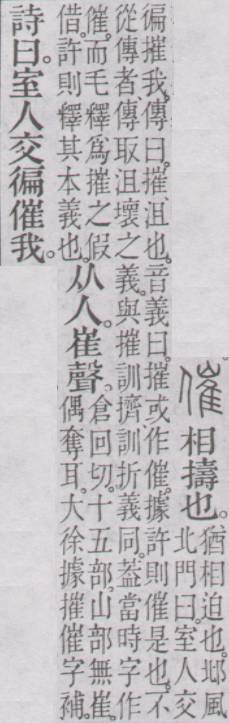 催 相擣也。
猶相迫也。邶風
北門曰。室人交
徧摧我。傳曰。摧沮也。音義曰。摧或作催。據許則催是也。不
從傳者傳取沮壞之義。與摧訓擠訓折義同。葢當時字作
催。而毛釋爲摧之假
借。許則釋其本義也。
从人。崔聲。
倉回切。十五部。山部無崔。
偶奪耳。大徐據摧催字補。
詩曰。室人交徧催我。